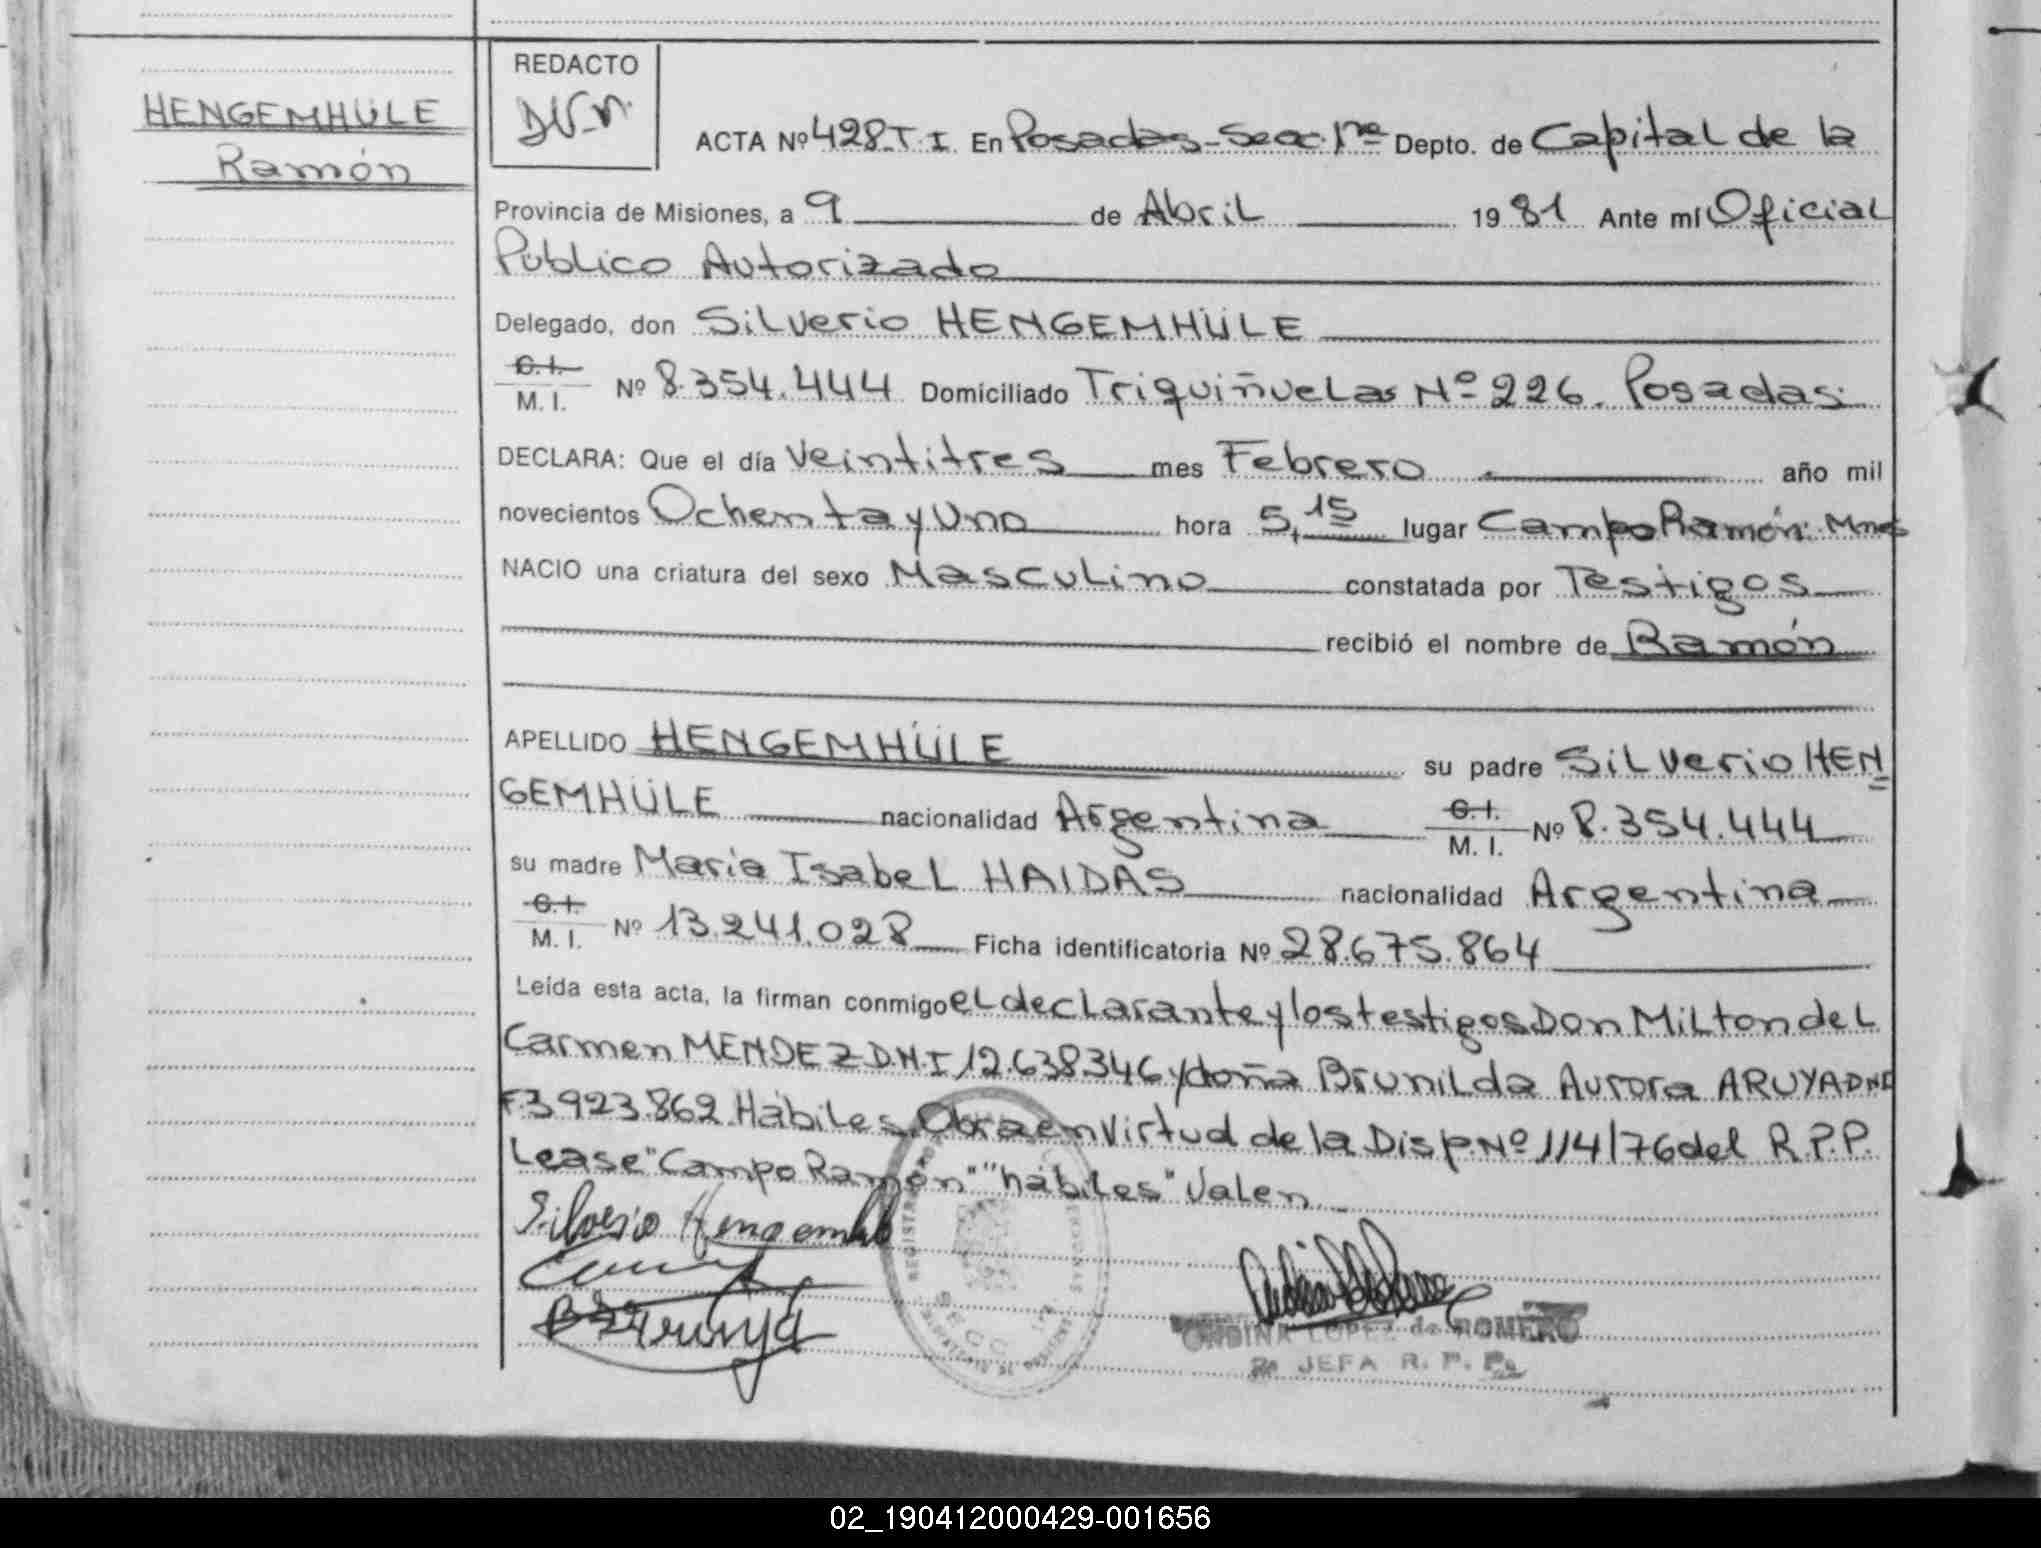 HENGEMHÜLE
Ramón
REDACTO
ACTA Nº 428-T.I. En Posadas-Secc. 1ra Depto. de Capital de la
Provincia de Misiones, a 9 de Abril 1981 Ante mí Oficial
Público Autorizado
Delegado, don Silverio HENGEMHÜLE
C.I. M. I. Nº 8.354.444 Domiciliado Triquiñuelas Nº 226. Posadas.
DECLARA: Que el día veintitres mes Febrero año mil
novecientos Ochenta y Uno hora 5,15 lugar Campo Ramón. Mnes
NACIO una criatura del sexo Masculino constatada por Testigos
recibió el nombre de Ramón
APELLIDO HENGEMHÜLE su padre Silverio HEN
GEMHÜLE nacionalidad Argentina C.I. M. I. Nº 8.354.444
su madre Maria Isabel HAIDAS nacionalidad Argentina
C.I. M. I. Nº 13.241.028 Ficha identificatoria Nº 28.675.864
Leída esta acta, la firman conmigo el declarante y los testigos Don Milton del
Carmen MENDEZ D.N.I 12.638346 y doña Brunilda Aurora ARUYA DNI
F.3.923.862 Habiles. Obra en Virtud de la Disp. Nº 114/76 del R.P.P.
Lease "Campo Ramón" "hábiles" Valen.
Silverio Hengemhüle
ONDINA LOPEZ de ROMERO
JEFA R. P. P.
SECC. 1ra
02_190412000429-001656